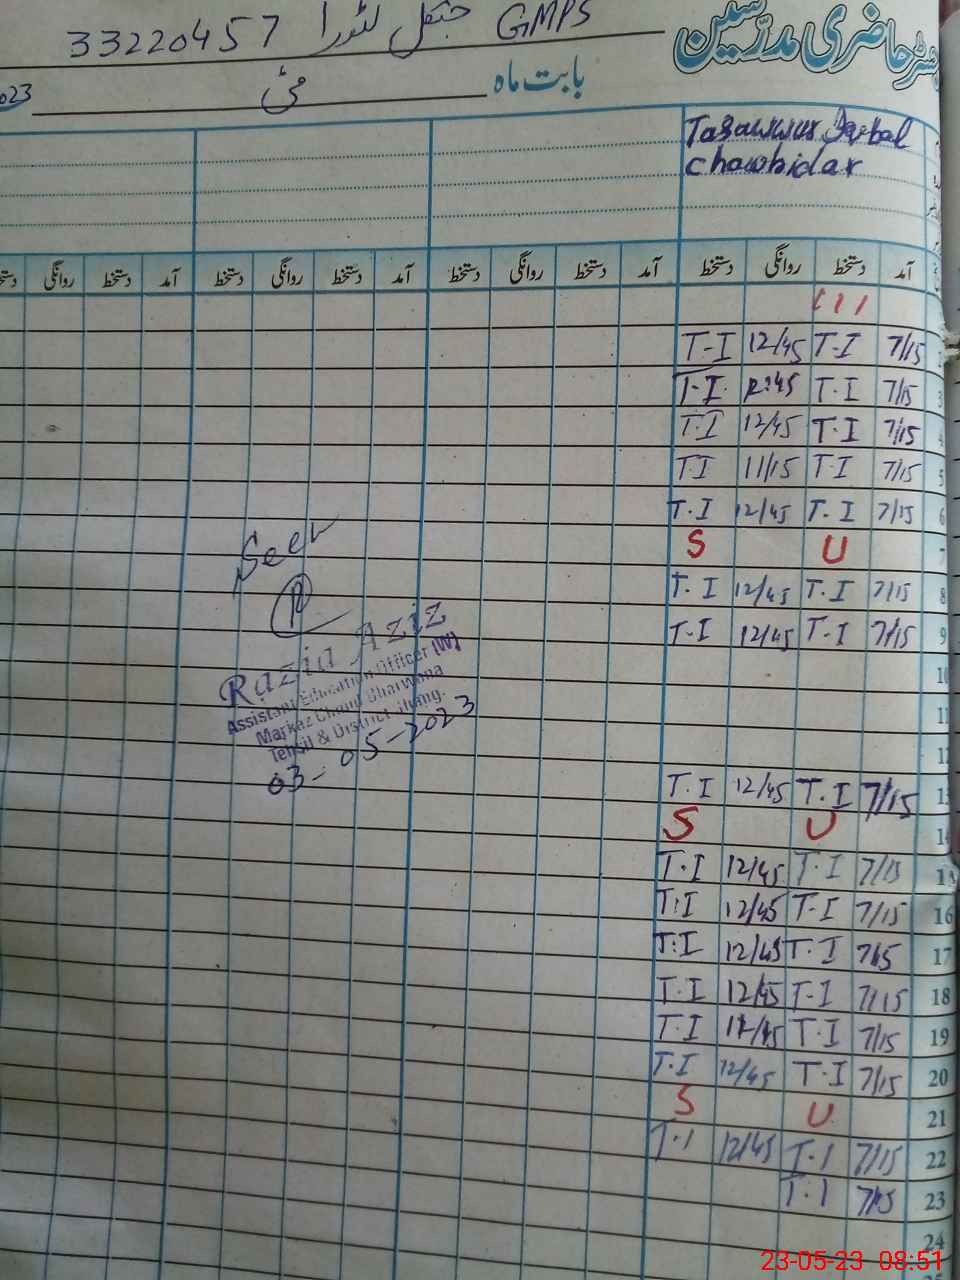 رجسٹر حاضری مدرسین
GMPS جنگل لٹورا 33220457
بابت ماہ مئی 2023
Tasawwur Iqbal
Chowkidar
آمد دستخط روانگی دستخط آمد دستخط روانگی دستخط آمد دستخط روانگی دستخط آمد دستخط روانگی دستخط
7/15 T-I 12/45 T-I
3 7/15 T.I 12:45 T.I
4 7/15 T.I 12/45 T.I
5 7/15 T.I 11/15 T I
6 7/15 T.I 12/45 T.I
7 U S
8 7/15 T.I 12/45 T.I
9 7/15 T.I 12/45 T.I
10
11
12
13 7/15 T.I 12/45 T.I
14 U S
15 7/15 T.I 12/45 T.I
16 7/15 T.I 12/45 T.I
17 7/15 T.I 12/45 T.I
18 7/15 T-I 12/45 T.I
19 7/15 T.I T.I
20 7/15 T.I 12/45 T.I
21 U S
22 7/15 T.I 12/45 T.I
23 7/15 T.I
24
Seen
Razia Aziz
Assistant Education Officer (W)
Markaz Chund Bharwana
Tehsil & District Jhang.
03-05-2023
23-05-23 08:51